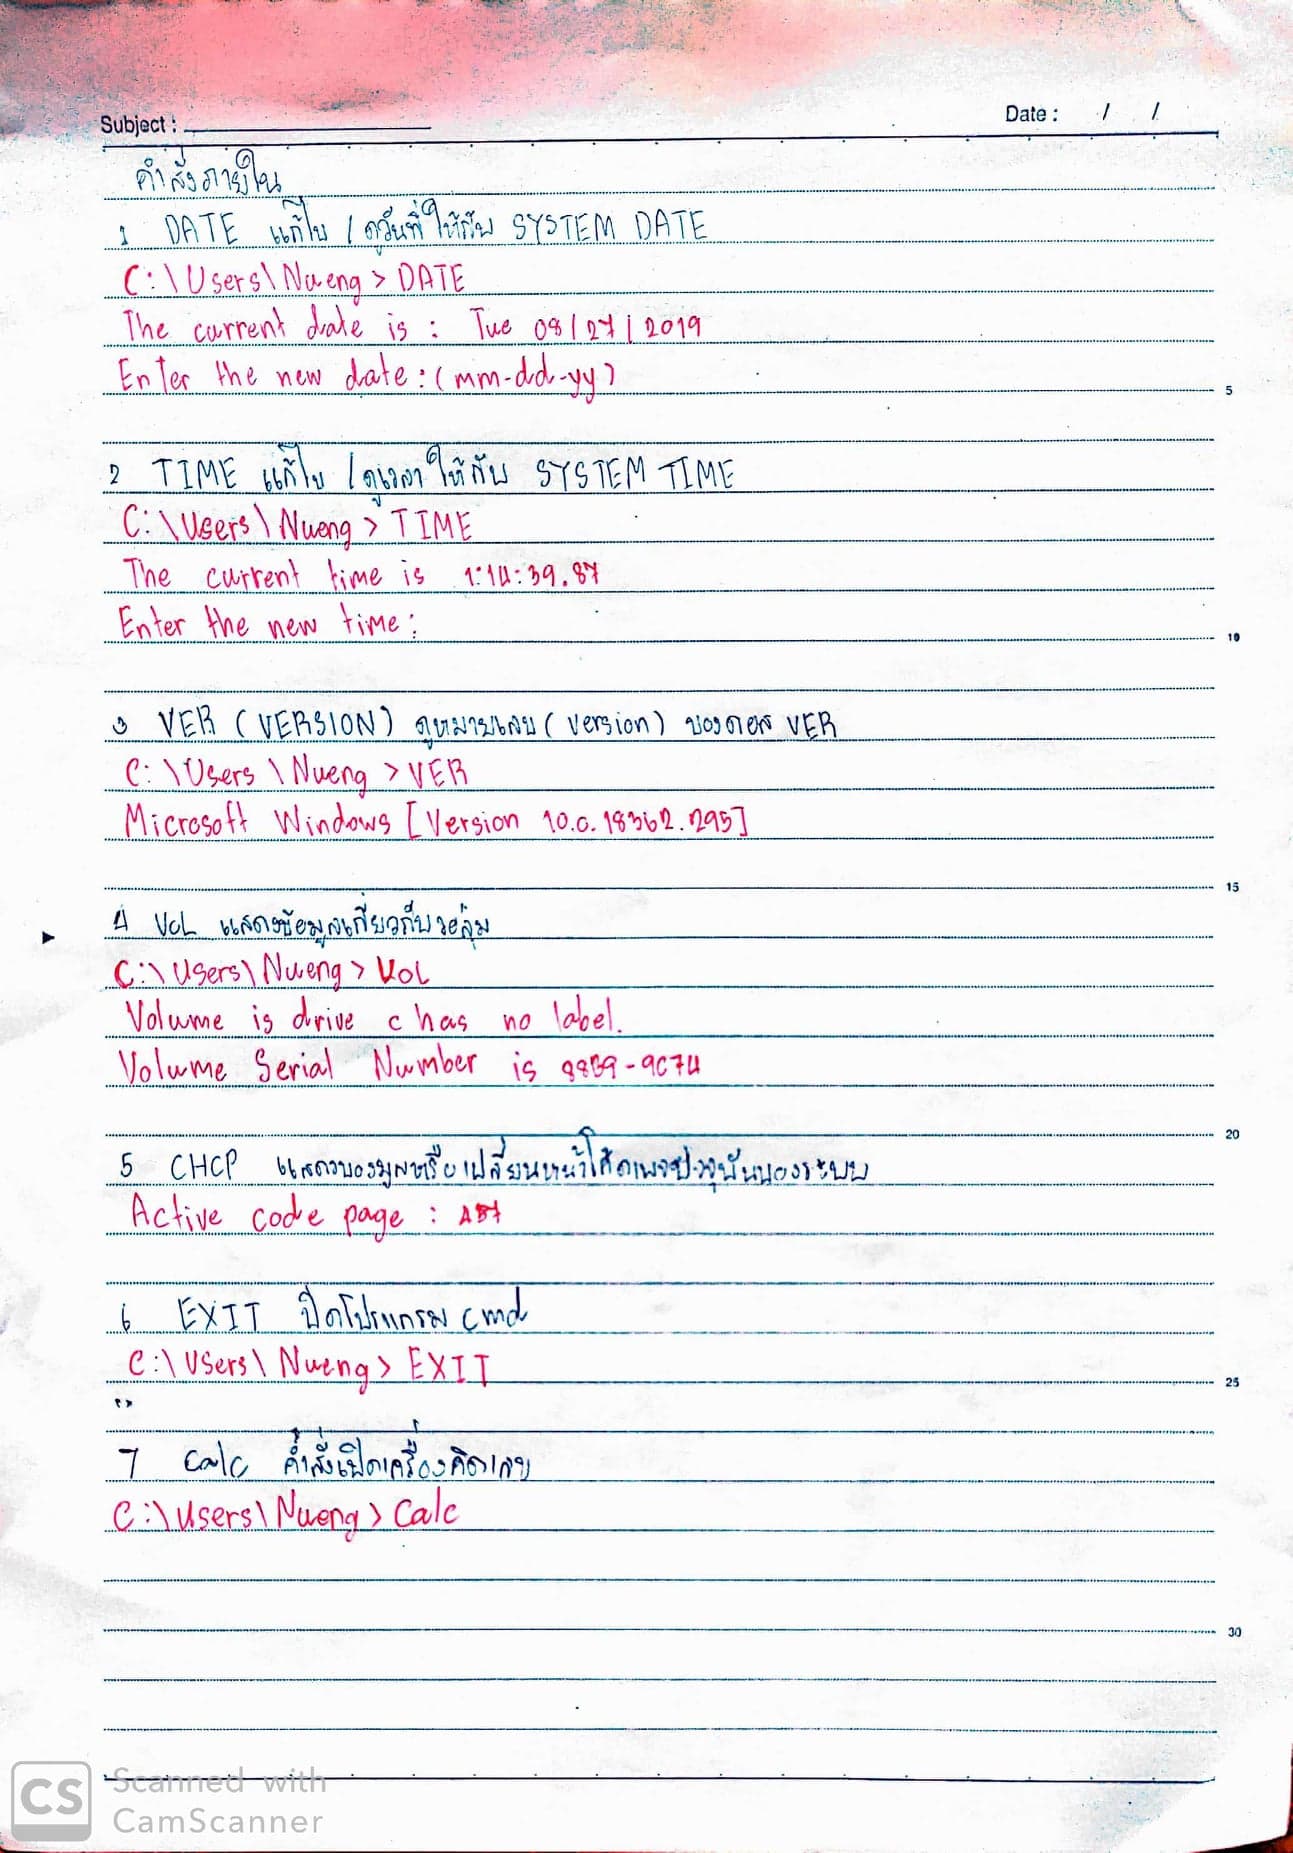 Subject :
Date : / /
คำสั่งภายใน
1 DATE แก้ไข / ดูวันที่ให้กับ SYSTEM DATE
C:\Users\Nueng > DATE
The current date is : Tue 08/27/2019
Enter the new date:(mm-dd-yy)
5
2 TIME แก้ไข / ดูเวลา ให้กับ SYSTEM TIME
C:\Users\Nueng > TIME
The current time is 1:14:39.87
Enter the new time:
10
3 VER (VERSION) ดูหมายเลข (version) ของดอส VER
C:\Users\Nueng > VER
Microsoft Windows [Version 10.0.18362.295]
15
4 VOL แสดงข้อมูลเกี่ยวกับวอลุ่ม
C:\Users\Nueng > VOL
Volume is drive c has no label.
Volume Serial Number is 9C74
20
5 CHCP หรือเปลี่ยนหน้าโค้ดเพจปัจจุบันของระบบ
Active code page :
6 EXIT ปิดโปรแกรม cmd
C:\Users\Nueng > EXIT
25
7 Calc คำสั่งเปิดเครื่องคิดเลข
C:\Users\Nueng > Calc
30
CS Scanned with
CamScanner